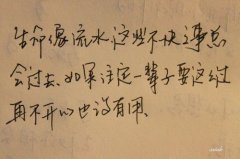 生命像流水，这些不快之事总
会过去。如果注定一辈子要这么过
再不开心也没有用。